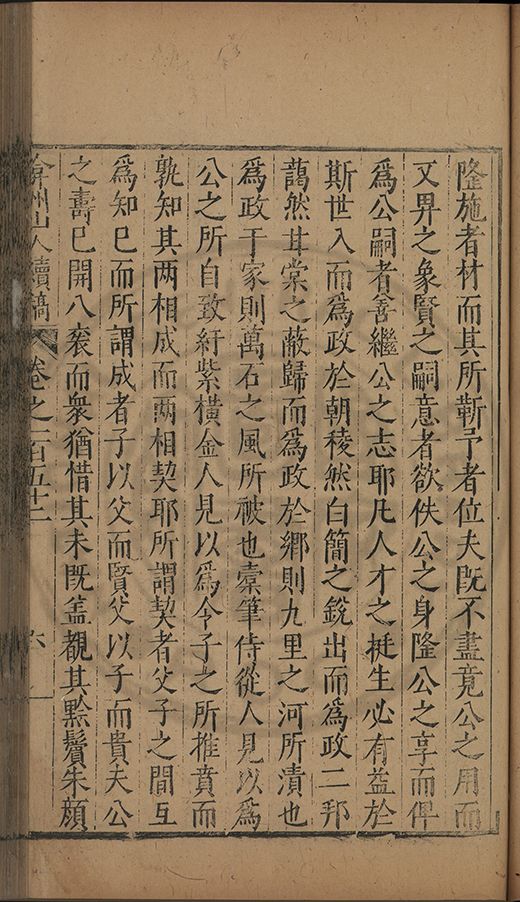 隆施者材而其所靳予者位夫既不盡竟公之用而
又畀之象賢之嗣意者欲佚公之身隆公之享而俾
爲公嗣者善繼公之志耶凡人才之挺生必有益於
斯世入而爲政於朝稜然白簡之銳出而爲政二邦
藹然甘棠之蔽歸而爲政於鄉則九里之河所漬也
爲政于家則萬石之風所被也橐筆侍從人見以爲
公之所自致紆紫橫金人見以爲令子之所推賁而
孰知其两相成而两相契耶所謂契者父子之間互
爲知巳而所謂成者子以父而賢父以子而貴夫公
之壽巳開八袠而衆猶惜其未既盖覩其黔鬢朱顔
弇州山人續稿 卷之一百五十二 六